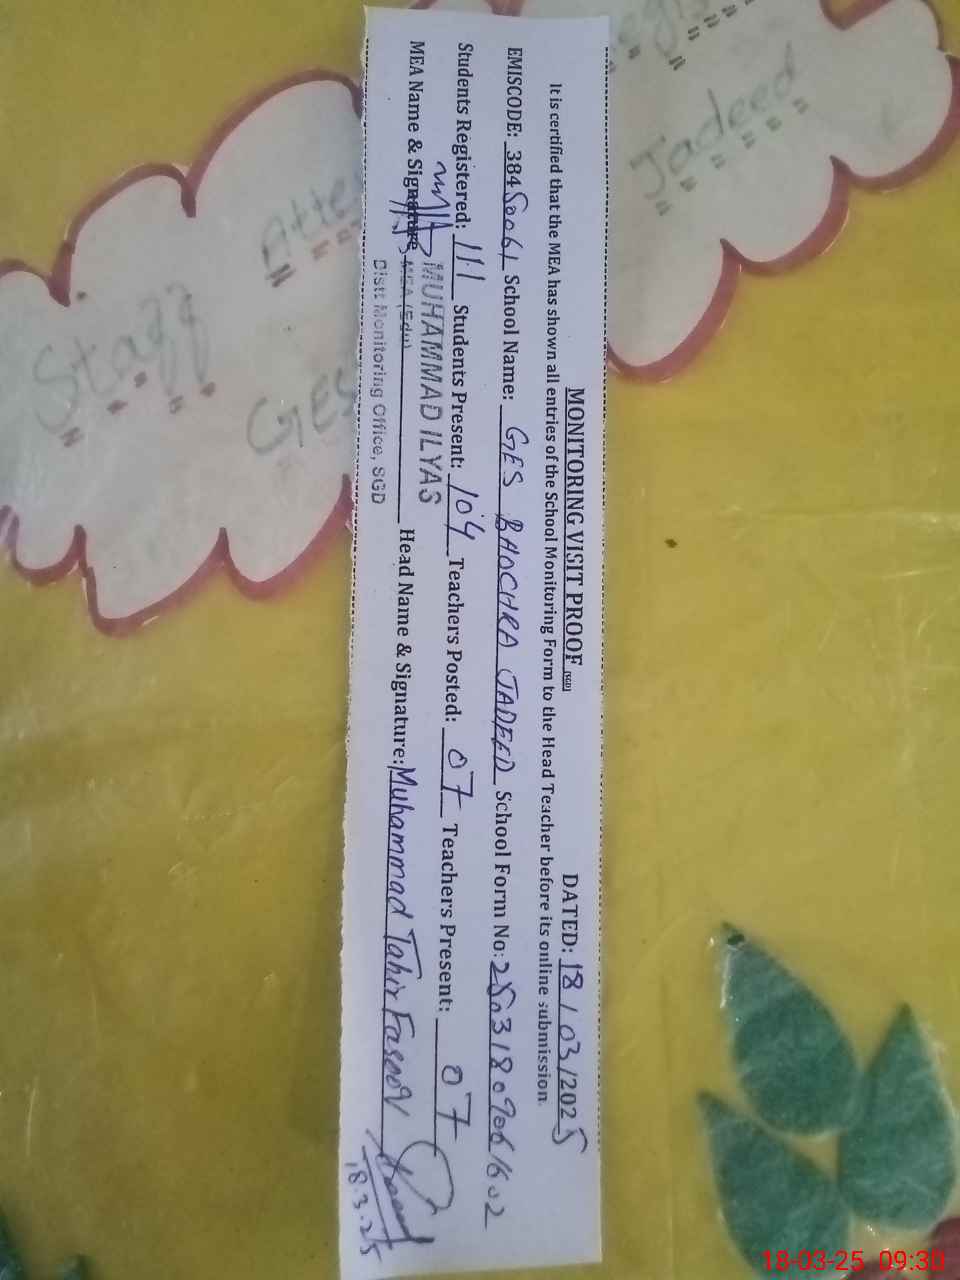 MONITORING VISIT PROOF (SGD) DATED: 18/03/2025
It is certified that the MEA has shown all entries of the School Monitoring Form to the Head Teacher before its online submission.
EMISCODE: 38450061 School Name: GES BHOCHRA JADEED School Form No:
Students Registered: 111 Students Present: 104 Teachers Posted: 07 Teachers Present: 07
MEA Name & Signature MUHAMMAD ILYAS Head Name & Signature: Muhammad Tahir Farooq
MEA (Edu)
Distt Monitoring Office, SGD
18.3.25
Jadeed
Staff
18-03-25 09:30